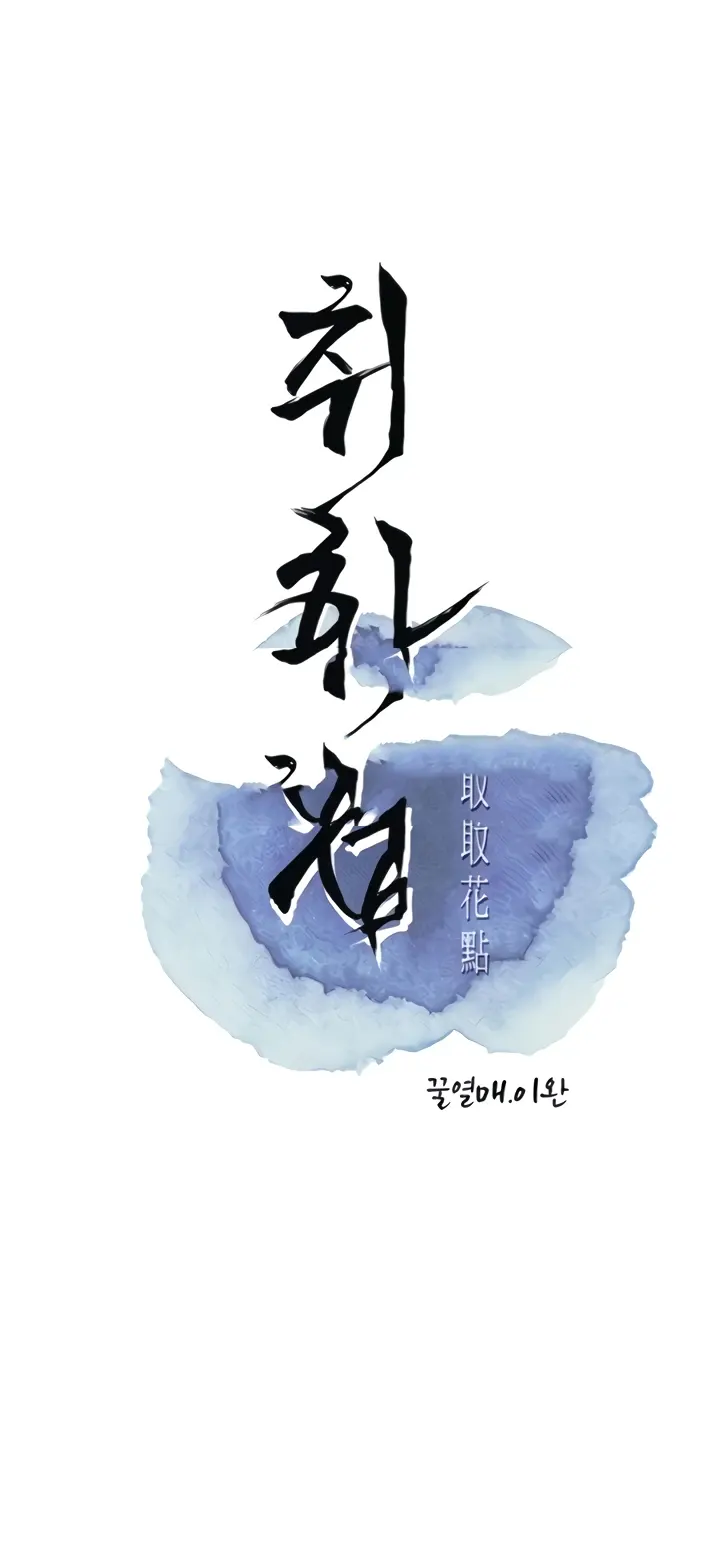 취화점
取取花點
꿀열매.이완